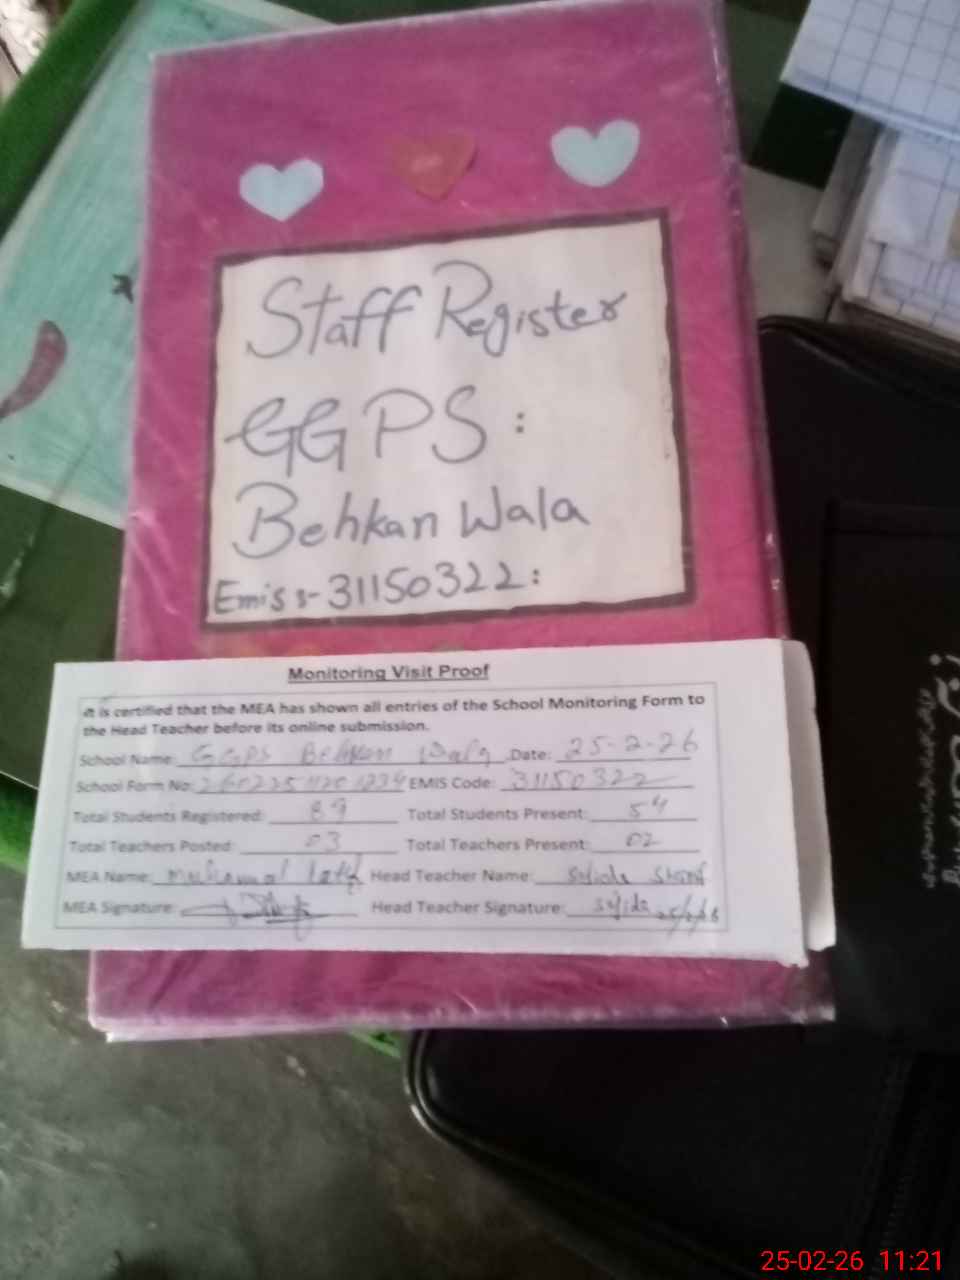 Staff Register
GGPS:
Behkan Wala
Emis :- 31150322:
Monitoring Visit Proof
It is certified that the MEA has shown all entries of the School Monitoring Form to
the Head Teacher before its online submission.
School Name: GGPS Behkan Wala Date: 25-2-26
School Form No: EMIS Code: 31150322
Total Students Registered: 89 Total Students Present: 54
Total Teachers Posted: 03 Total Teachers Present: 02
MEA Name: Head Teacher Name:
MEA Signature: Head Teacher Signature: 25/2/26
25-02-26 11:21